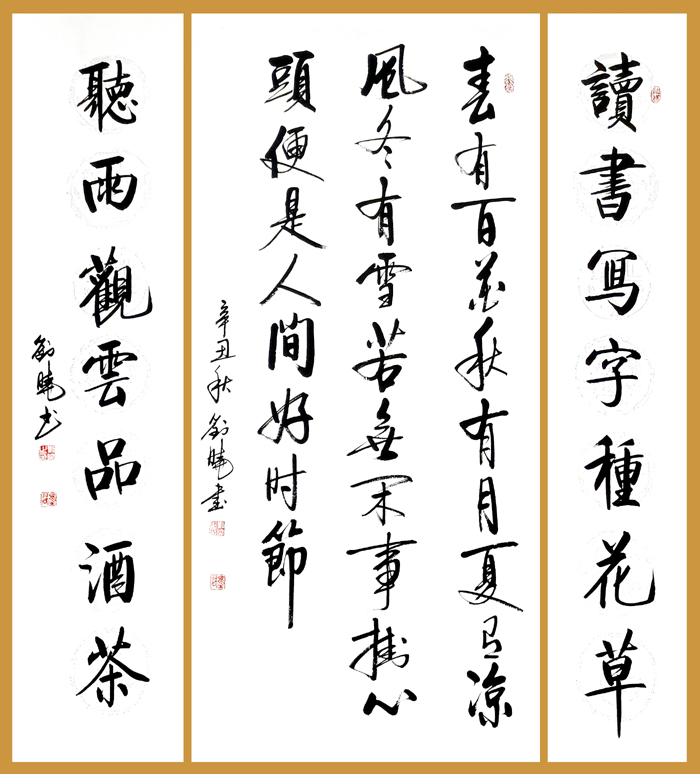 讀書冩字種花草
春有百花秋有月夏有凉
風冬有雪若無闲事掛心
頭便是人間好时節
辛丑秋劉曉書
聽雨觀雲品酒茶
劉曉书